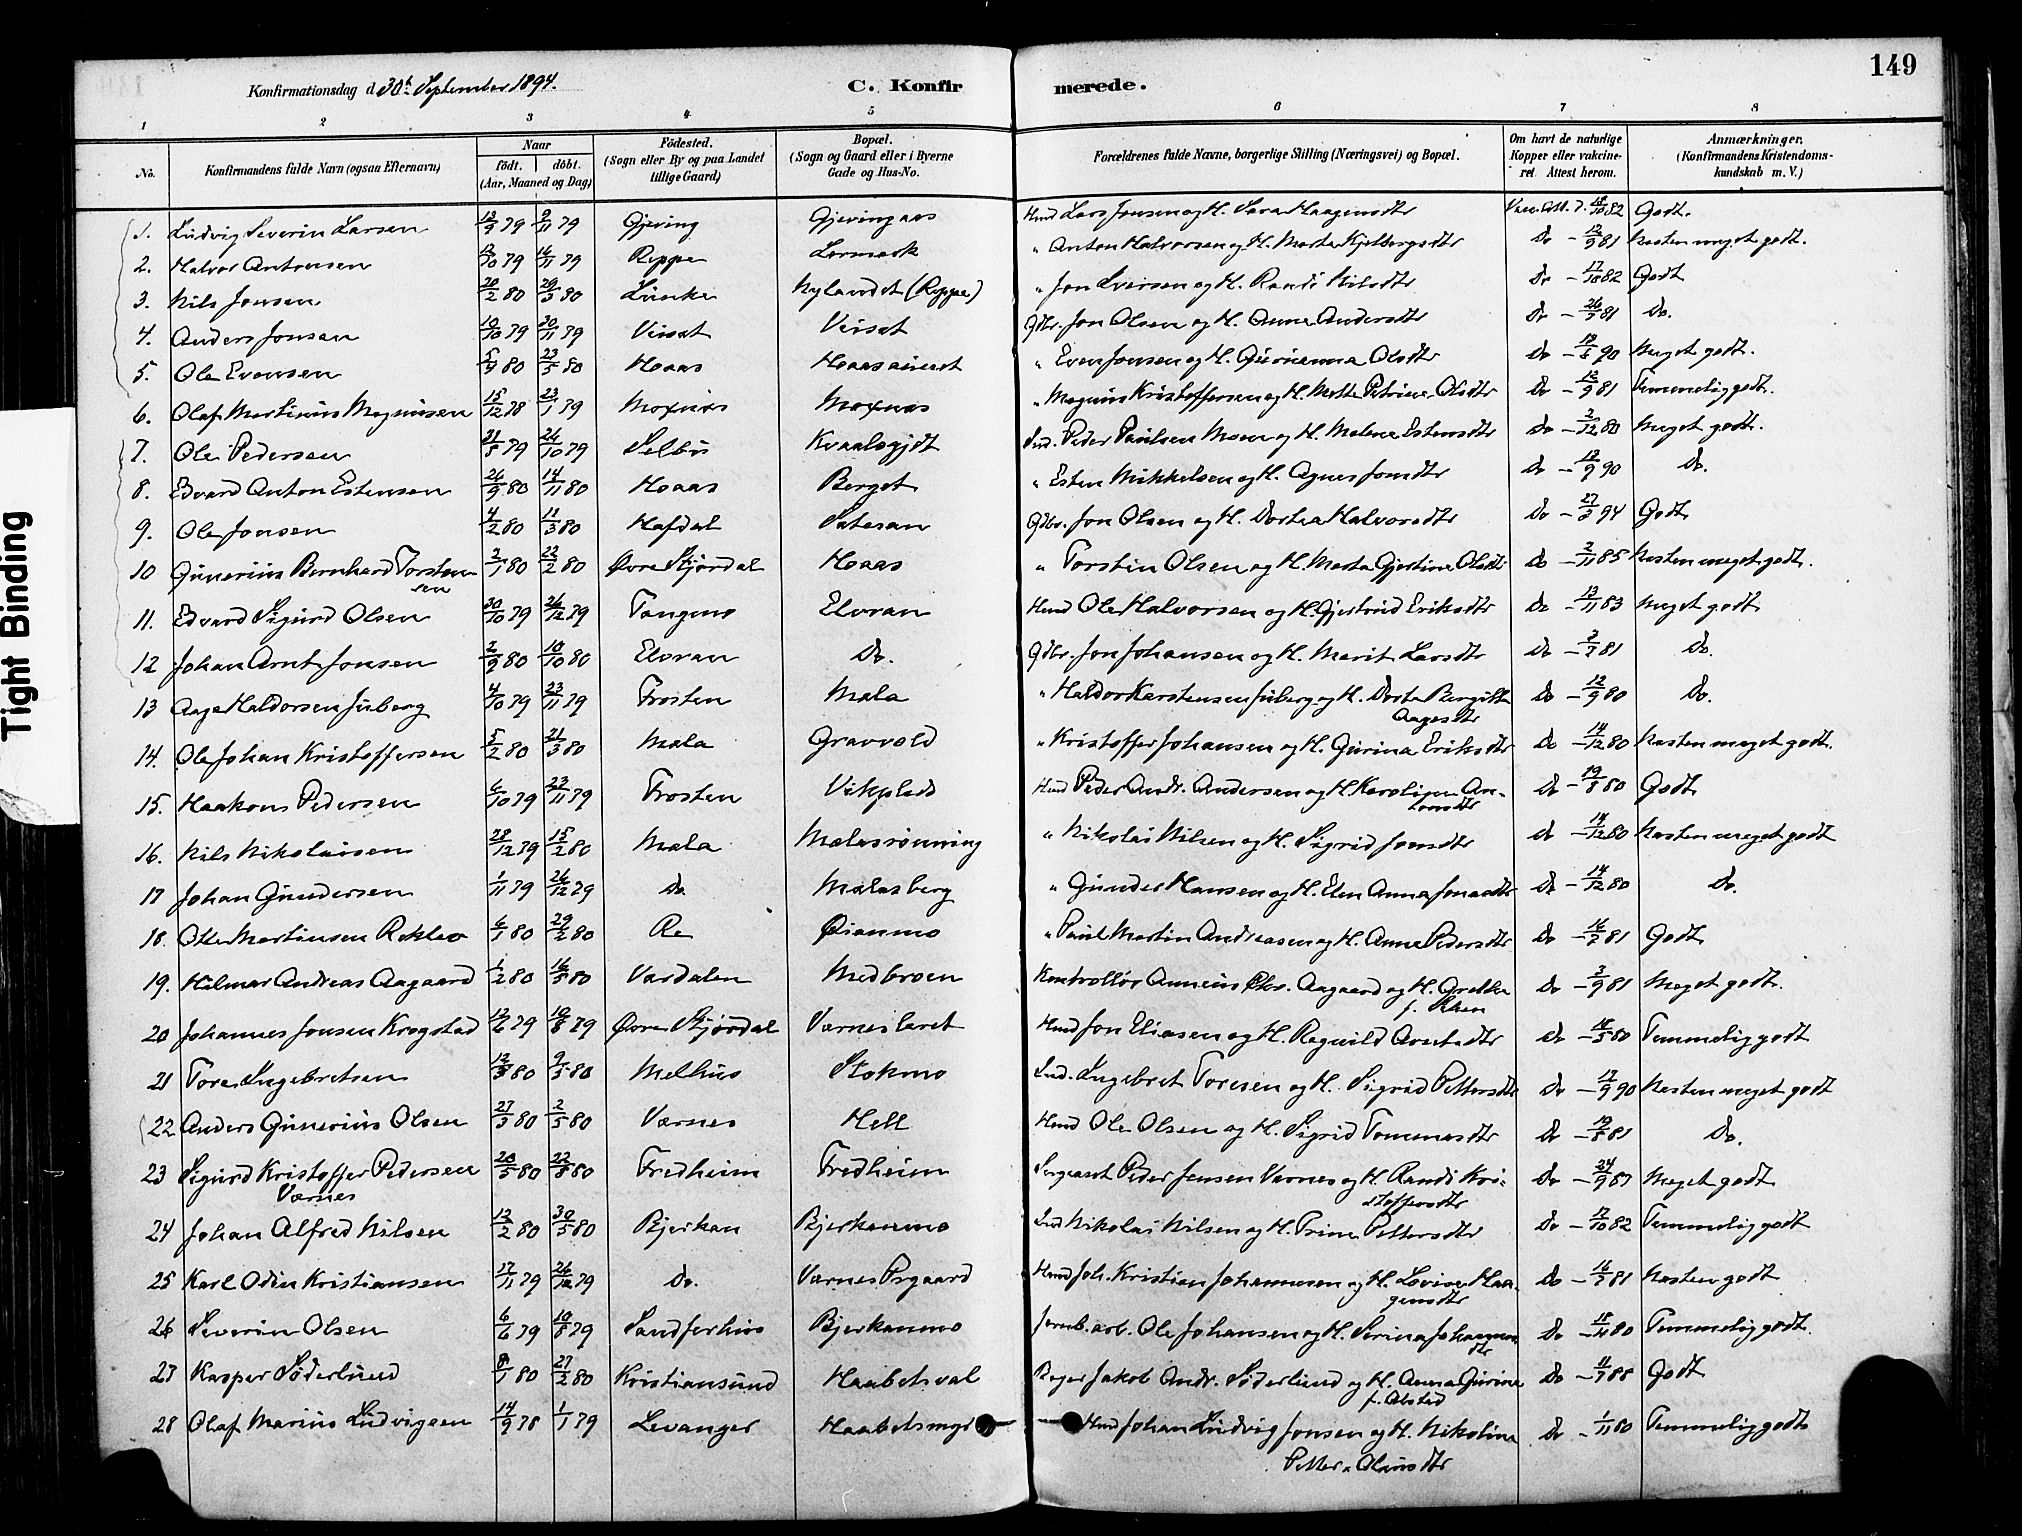 149
Konfirmationsdag d. 30te September 1894. C. Konfirmerede.
1 2 3 4 5 6 7 8
No. Konfirmandens fulde Navn (ogsaa Efternavn) Naar födt. döbt. (Aar, Maaned og Dag) Födested. (Sogn eller By og paa Landet tillige Gaard) Bopæl. (Sogn og Gaard eller i Byerne Gade og Hus-No. Forældrenes fulde Navne, borgerlige Stilling (Næringsvei) og Bopæl. Om havt de naturlige Kopper eller vakcineret. Attest herom. Anmærkninger. (Konfirmandens Kristendomskundskab m. V.)
1. Ludvig Severin Larsen 12/9 79 9/11 79 Gjeving Gjevingaas Husmd Lars Jonsen og H. Sara Haagensdtr 18/10 82 Godt.
2. Halvor Antonsen 12/10 79 16/11 79 Reppe Lermark " Anton Halvorsen og H. Marta Kjelbergsdtr Do - 12/9 81 Næsten meget godt.
3. Nils Jonsen 20/2 80 29/3 80 Lunke Nylandet (Reppe) " Jon Iversen og H. Randi Nilsdtr Do - 17/10 82 Godt
4. Anders Jonsen 10/10 79 30/11 79 Vinsat Vinsat Gdbr. Jon Olsen og H. Anne Andersdtr Do - Do.
5. Ole Evensen 23/5 80 Hoaas " Even Jonsen og H. Gurianna Olsdtr Do - Meget godt.
6. Olaf Martinus Magnusen 15/12 78 23/1 79 Moxnæs Moxnæs " Magnus Kristoffersen og H. Mette Petrine Olsdtr Do - 12/9 81 Temmelig godt.
7. Ole Pedersen 21/8 79 26/10 79 Selbu Kvaalsgjdt Ind. Peder Paulsen Moen og H. Malene Estensdtr Do - 2/12 80 Meget godt.
8. Edvard Anton Estensen 26/9 80 14/11 80 Hoaas Berget " Esten Mikkelsen og H. Agnes Jonsdtr Do - 12/9 90 Do.
9. Ole Jonsen 4/2 80 11/3 80 Hafdal Gdbr. Jon Olsen og H. Dortea Halvorsdtr Do - 27/3 94 Godt
10 Gunerius Bernhard Torstensen 2/1 80 22/2 80 Øvre Stjørdal Hoaas " Torstin Olsen og H. Marta Gjertine Olsdtr Do - 2/11 85 Næsten meget godt.
11. Edvard Sigurd Olsen 30/10 79 26/12 79 Tangmo Elvran Husmd Ole Halvorsen og H. Gjertrud Eriksdtr Do - 13/11 83 Meget godt
12 Johan Arnt Jonsen 2/9 80 10/10 80 Elvran Do. Gdbr. Jon Johansen og H. Marit Larsdtr Do - Do.
13 Aage Haldorsen Juberg 4/10 79 23/11 79 Frosten Mala " Haldor Karstensen Juberg og H. Dorte Bergitte Aagesdtr Do - 12/9 80 Do.
14. Ole Johan Kristoffersen 5/2 80 21/3 80 Mala Gravvold " Kristoffer Johansen og H. Gurina Eriksdtr Do - 14/12 80 Næsten meget godt.
15. Haakons Pedersen 6/10 79 23/11 79 Frosten Vikplads Husmd Peder Andr. Andersen og H. Karoline Antonsdtr Do - 19/8 80 Godt
16. Nils Nikolaisen 28/12 79 15/2 80 Mala Malasrønning " Nikolai Nilsen og H. Sigrid Jonsdtr do - 14/12 80 Næsten meget godt
17 Johan Gundersen 1/11 79 26/12 79 Do. Malasberg " Gunder Hansen og H. Elen Anna Jonasdtr Do - 14/12 80 Do.
18. Otto Martinsen Rokleo 6/1 80 29/2 80 Re Øianmo " Paul Martin Andreasen og H. Anne Pedersdtr Do - Godt
19. Hilmar Andreas Aagaard 1/2 80 16/5 80 Værdalen Medbroen Kontrollør Anneus Chr. Aagaard og H. Grethe f. Do - 3/9 81 Meget godt.
20 Johannes Jonsen Krogstad 12/6 79 10/8 79 Øvre Stjørdal Værneslaret Husmd Jon Eliasen og H. Ragnild Arntsdtr Do - 18/5 80 Temmelig godt
21 Tore Ingebretsen 12/3 80 9/5 80 Melhus Stokmo Ind. Ingebret Toresen og H. Sigrid Pettersdtr Do - 17/9 90 Næsten meget godt
22 Anders Gunerius Olsen 27/3 80 2/5 80 Værnes Hell Husmd Ole Olsen og H. Sigrid Tommasdtr Do - 19/8 81 Do.
23 Sigurd Kristoffer Pedersen Værnes 20/5 80 22/8 80 Fredheim Fredheim Sergeant Peder Jensen Værnes og H. Randi Kristoffersdtr Do - Meget godt
24 Johan Alfred Nilsen 12/2 80 30/5 80 Bjerkan Bjerkanmo Ind Nikolai Nilsen og H. Trine Pettersdtr Do - 17/10 82 Temmelig godt
25 Karl Odin Kristiansen 17/11 79 26/12 79 Do. Værnes Prgaard Husmd Joh. Kristian Johannesen og H. Lovise Haagensdtr Do - Næsten godt
26 Severin Olsen 6/6 79 10/8 79 Sandferhus Bjerkanmo Jernb. arb. Ole Johansen og H. Serina Johannesdtr Do - Temmelig godt.
27 Kasper Søderlund 8/1 80 27/2 80 Kristiansund Haabetsval Bager Jakob Andr. Søderlund og H. Anna Gurine f. Obstad Do - Godt
28 Olaf Marius Ludvigsen 14/9 78 1/1 79 Levanger Haabetsmyr Husmd Johan Ludvig Jonsen og H. Nikoline Petter. Olausdtr Do - 1/11 80 Temmelig godt
Tight Binding